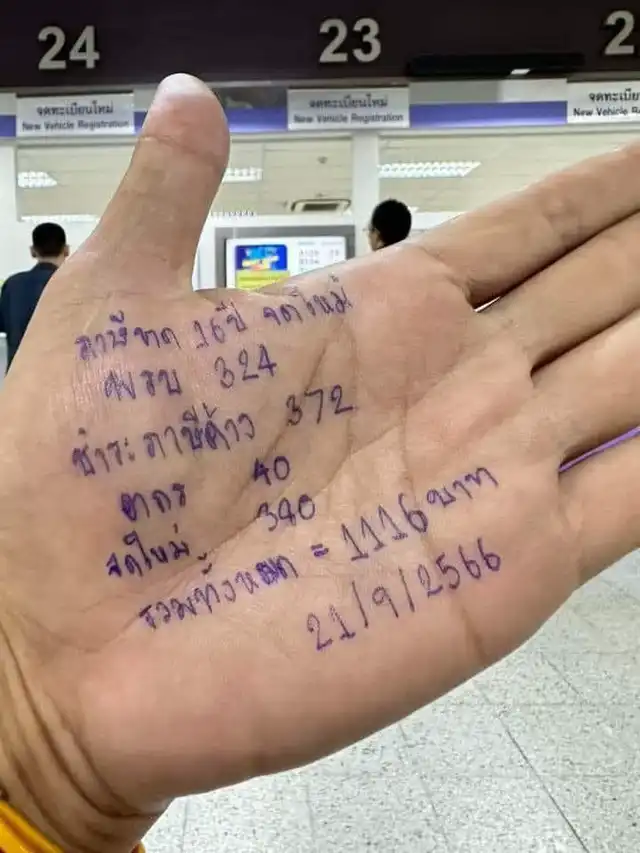 24
23
2
จดทะเบียนใหม่
New Vehicle Registration
จดทะเบียนใหม่
New Vehicle Registration
จดทะเบีย
New Vehicle Re
ภาษีขาด 16ปี จดใหม่
พรบ 324
ชำระภาษีค้าง 372
ตตร 40
จดใหม่ 380
รวมทั้งหมด = 1116 บาท
21/9/2566